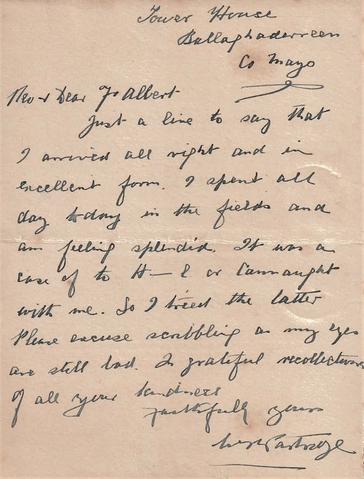 Tower House
Ballaghaderreen
Co Mayo
Rev & Dear Fr Albert
Just a line to say that
I arrived all right and in
excellent form. I spent all
day today in the fields and
am feeling splendid. It was a
case of to H—L or Connaught
with me. So I tried the latter
Please excuse scribbling as my eyes
are still bad. In grateful recollections
of all your kindness
Faithfully yours
Partridge